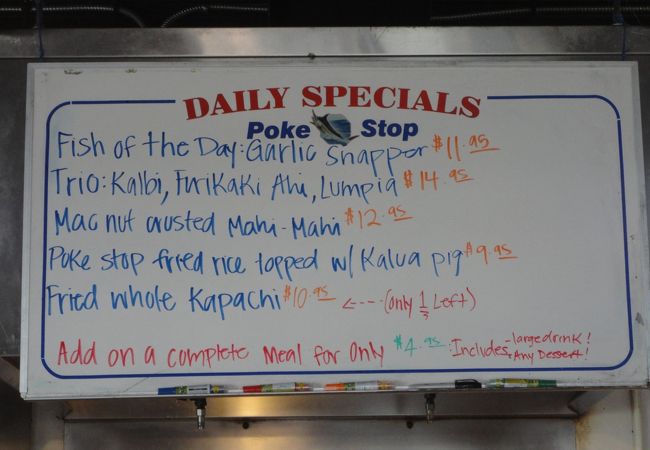 DAILY SPECIALS
Poke Stop
Fish of the Day: Garlic Snapper $11.95
Trio: Kalbi, Furikaki Ahi, Lumpia $14.95
Mac nut crusted Mahi-Mahi $12.95
Poke stop fried rice topped w/ Kalua pig $9.95
Fried whole Kapachi $10.95 <--- (only left)
Add on a complete Meal for Only $4.95 :Includes -large drink!
-Any Dessert!